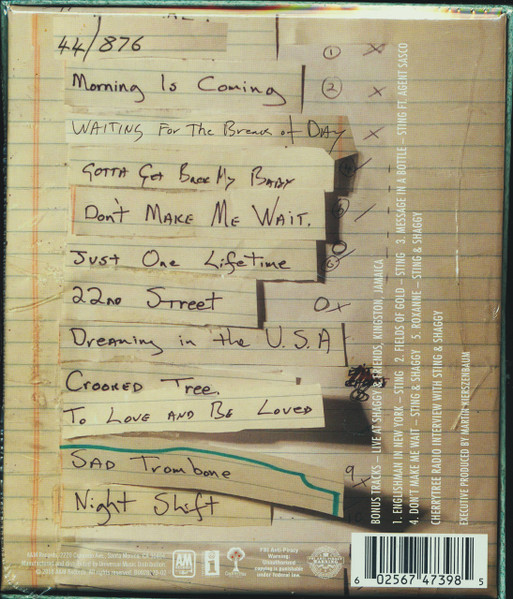 44/876
①
Morning Is Coming
②
WAITING For The Break of DAY
GOTTA Get Back My BABY
DON'T MAKE ME WAIT.
Just One Lifetime
22nd Street
Dreaming in the U.S.A
CROOKED Tree.
To LOVE AND BE LOVED
SAD Trombone
9
Night Shift
BONUS TRACKS – LIVE AT SHAGGY & FRIENDS, KINGSTON, JAMAICA
1. ENGLISHMAN IN NEW YORK – STING 2. FIELDS OF GOLD – STING 3. MESSAGE IN A BOTTLE – STING FT. AGENT SASCO
4. DON'T MAKE ME WAIT – STING & SHAGGY 5. ROXANNE – STING & SHAGGY
CHERRYTREE RADIO INTERVIEW WITH STING & SHAGGY
EXECUTIVE PRODUCED BY MARTIN KIERSZENBAUM
A&M Records, 2220 Colorado Ave., Santa Monica, CA 90404
Manufactured and distributed by Universal Music Distribution.
A&M
i
FBI Anti-Piracy
Warning:
Unauthorized
copying is punishable
under federal law.
6 02567 47398 5